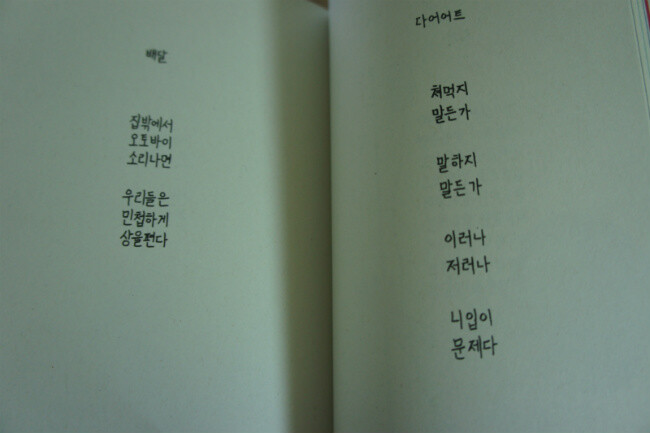 배달
집밖에서
오토바이
소리나면
우리들은
민첩하게
상을편다
다이어트
쳐먹지
말든가
말하지
말든가
이러나
저러나
니입이
문제다